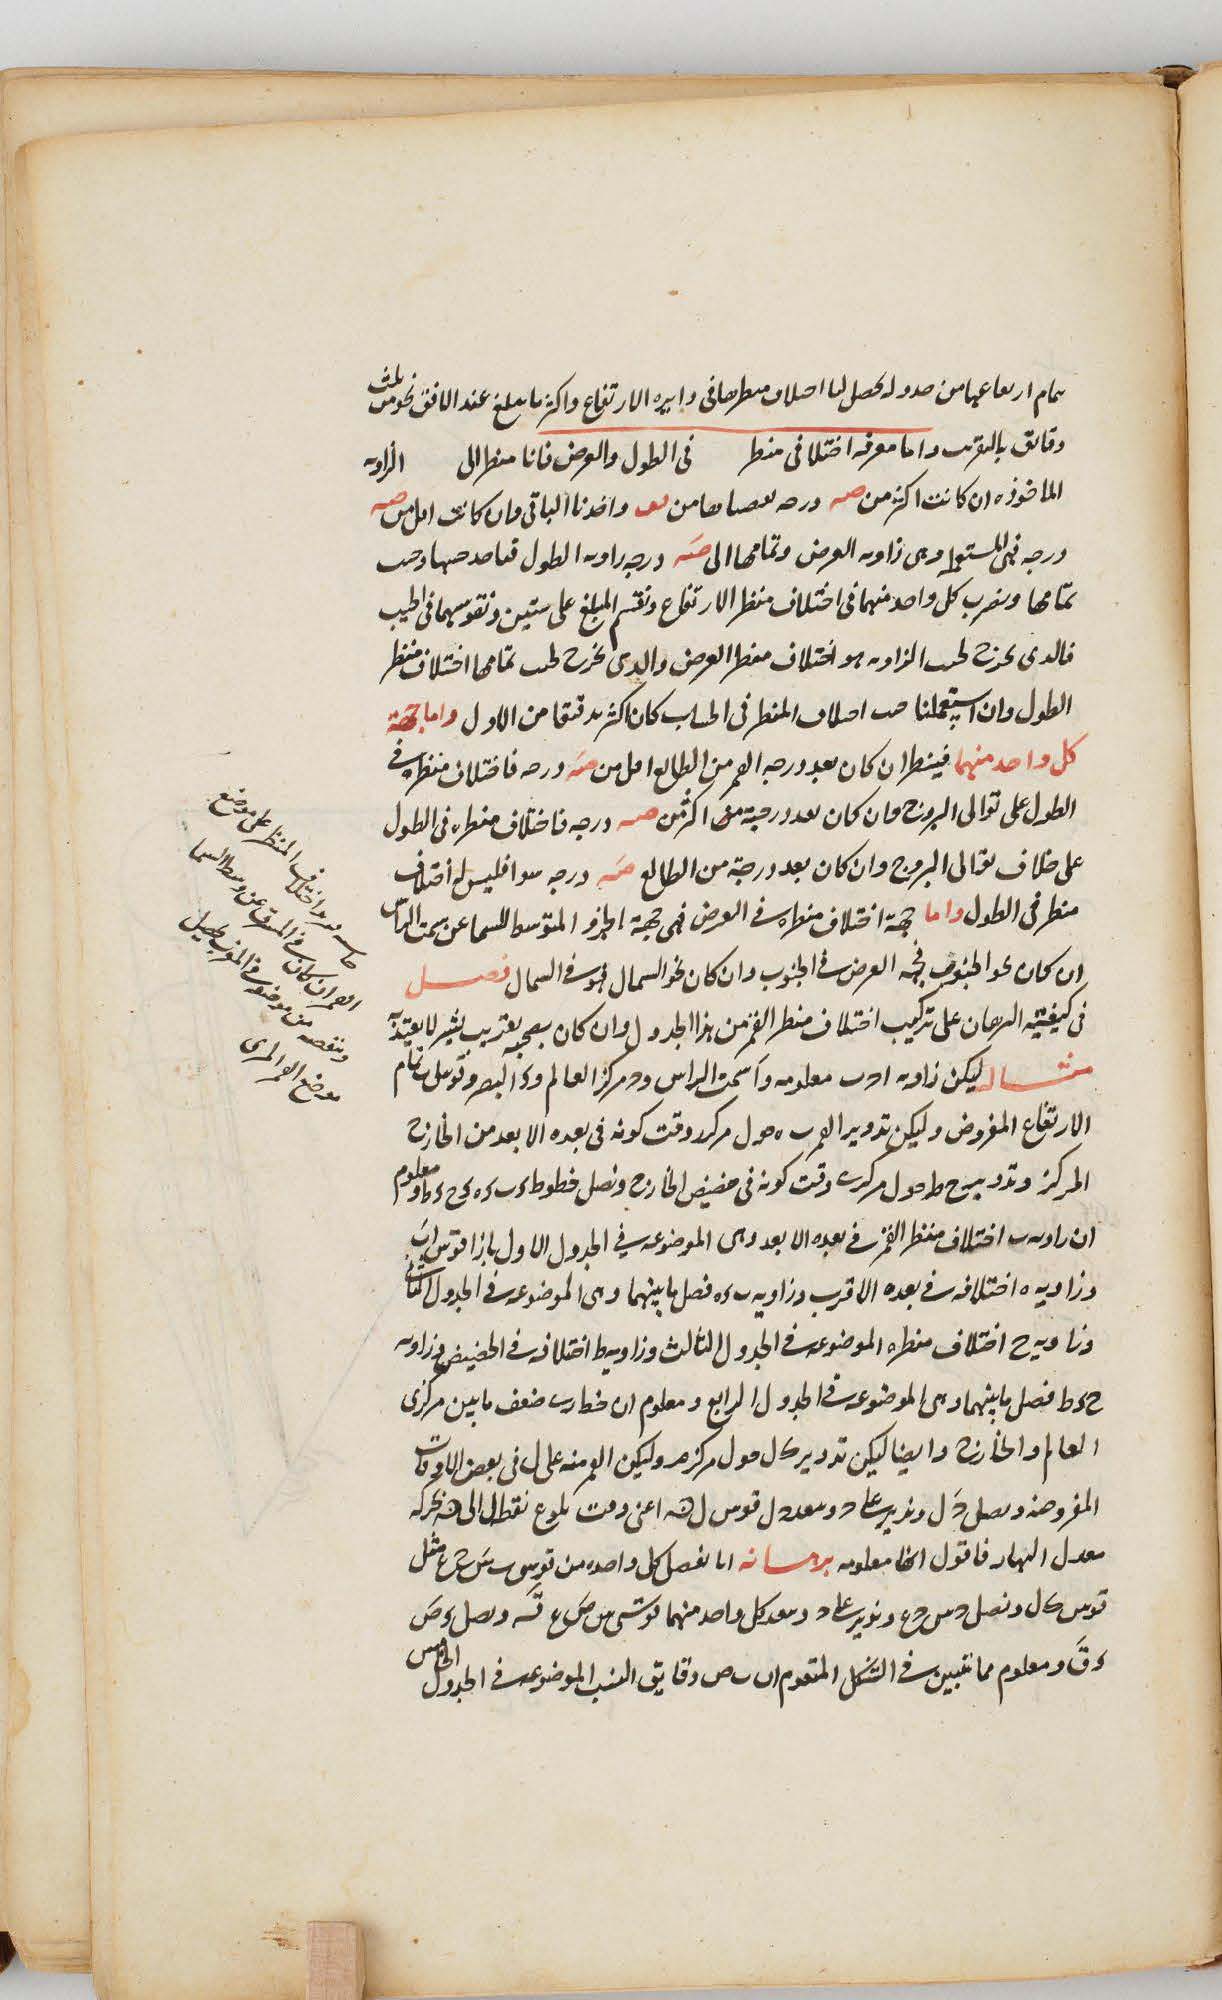 تمام ارتفاعها من جدوله يحصل لنا اختلاف منظرها في دايره الارتفاع واكثر ما يبلغ عند الافق نحو من ثلث
دقائق بالتقريب واما معرفه اختلافي منظر في الطول والعرض فانا ننظر الى الزاويه
الماخوذه ان كانت اكثر من صه درجه نقصناها من واخذنا الباقي وان كانت اقل من صه
درجه فهي المستعمله وهي زاويه العرض وتمامها الى صه درجه زاويه الطول فناخذ جيبها وجيب
تمامها ونضرب كل واحد منهما في اختلاف منظر الارتفاع ونقسم المبلغ على ستين ونقوسهما في الجيب
فالذي يخرج لجيب الزاويه هو اختلاف منظر العرض والذي يخرج لجيب تمامها اختلاف منظر
الطول وان استعملنا جيب اختلاف المنظر في الحساب كان اكثر تدقيقا من الاول واما جهة
كل واحد منهما فينظر ان كان بعد درجه القمر من الطالع اقل من صه درجه فاختلاف منظره في
الطول على توالي البروج وان كان بعد درجته منه اكثر من صه درجه فاختلاف منظره في الطول
على خلاف توالي البروج وان كان بعد درجة من الطالع صه درجه سوا فليس له اختلاف
منظر في الطول واما جهة اختلاف منظره في العرض فهي جهة الجزو المتوسط للسما عن سمت الراس
ان كان نحو الجنوب فجهه العرض في الجنوب وان كان نحو الشمال فهو في الشمال فصل
في كيفيته البرهان على تركيب اختلاف منظر القمر من هذا الجدول وان كان يصحبه تقريب يسير لا يعتد به
مثاله ليكن زاويه ا د ب معلومه و ا سمت الراس و د مركز العالم و ى البصر وقوس ا ب تمام
الارتفاع المفروض وليكن تدوير القمر ب ه حول مركز د وقت كونه في بعده الابعد من الخارج
المركز وتدوير ح ط حول مركز ى وقت كونه في حضيض الخارج ونصل خطوط ى ب ى ه ى ح ى ط ومعلوم
ان زاويه ب اختلاف منظر القمر في بعده الابعد وهي الموضوعه في الجدول الاول بازا قوس اب
وزاويه ه اختلافه في بعده الاقرب وزاويه ب ى ه فضل ما بينهما وهي الموضوعه في الجدول الثاني
وزاويه ح اختلاف منظره الموضوعه في الجدول الثالث وزاويه ط اختلافه في الحضيض وزاويه
ح ى ط فضل ما بينهما وهي الموضوعه في الجدول الرابع ومعلوم ان خط ا ر ى ضعف ما بين مركزي
العالم والخارج وايضا ليكن تدوير ك ل حول مركز م وليكن القمر منه على ل في بعض الاوقات
المفروضه ونصل د ل وندير على د وببعد د ل قوس ل ن اعني وقت بلوغ نقطه ل الى ن بحركه
معدل النهار فاقول انها معلومه برهانه انا نفصل كل واحده من قوسي ب س ح ع مثل
قوس ك ل ونصل د س د ع وندير على د وببعد كل واحد منهما قوسي س ص ع ق ونصل ى ص
ى ق ومعلوم مما تبين في الشكل المتقدم ان ب ص دقايق النسب الموضوعه في الجدول الخامس
اختلاف المنظر على موضع
القمر ان كان في المشرق عن وسط السما
وننقصه من موضعه في المغرب فيحصل
موضع القمر المرى